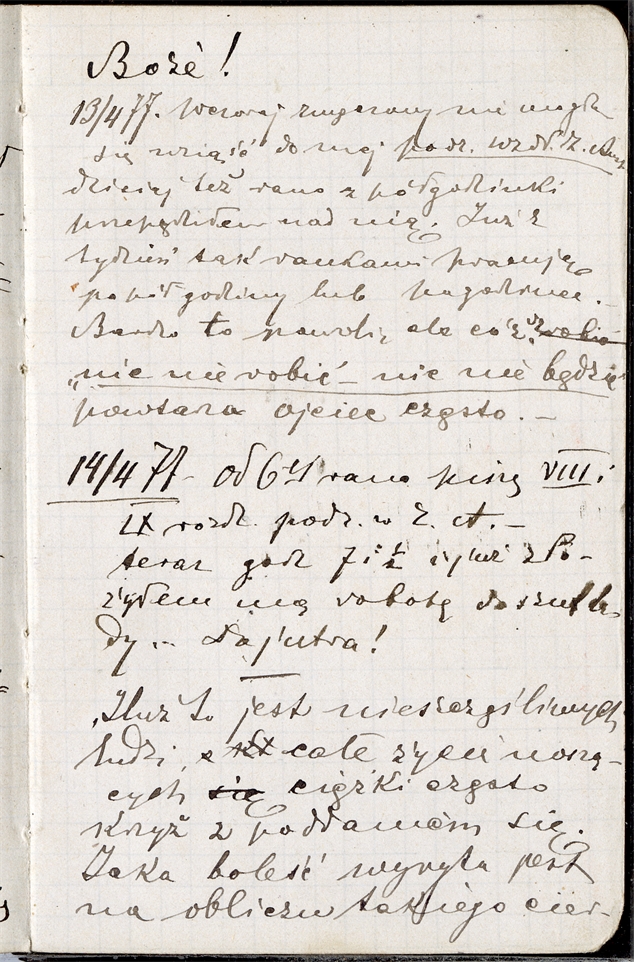 Boże!
13/4 77. Wczoraj zmęczony nie mogłem
się wziąść do mej podr. wzdł. Z. Am
dzisiaj też rano z półgodzinki
przepędziłem nad nią. Już z
tydzień tak rankami pracuję
po pół godziny lub po godzince. –
Bardzo to powoli, ale coś się robi
"nie nie robić – nic nie będzie
powtarza ojciec często. –
14/4 77 – Od 6 ej rano piszę VIII i
IX rozdz. podr. w Z. A. –
teraz godz 7 i ½ i już zło-
żyłem mą robotę do szufla
dy – Do jutra!
"Iluż to jest nieszczęśliwych
ludzi, z całe życie noszą-
cych się ciężki często
krzyż z poddaniem się.
Jaka boleść wyryta jest
na obliczu takiego cier-